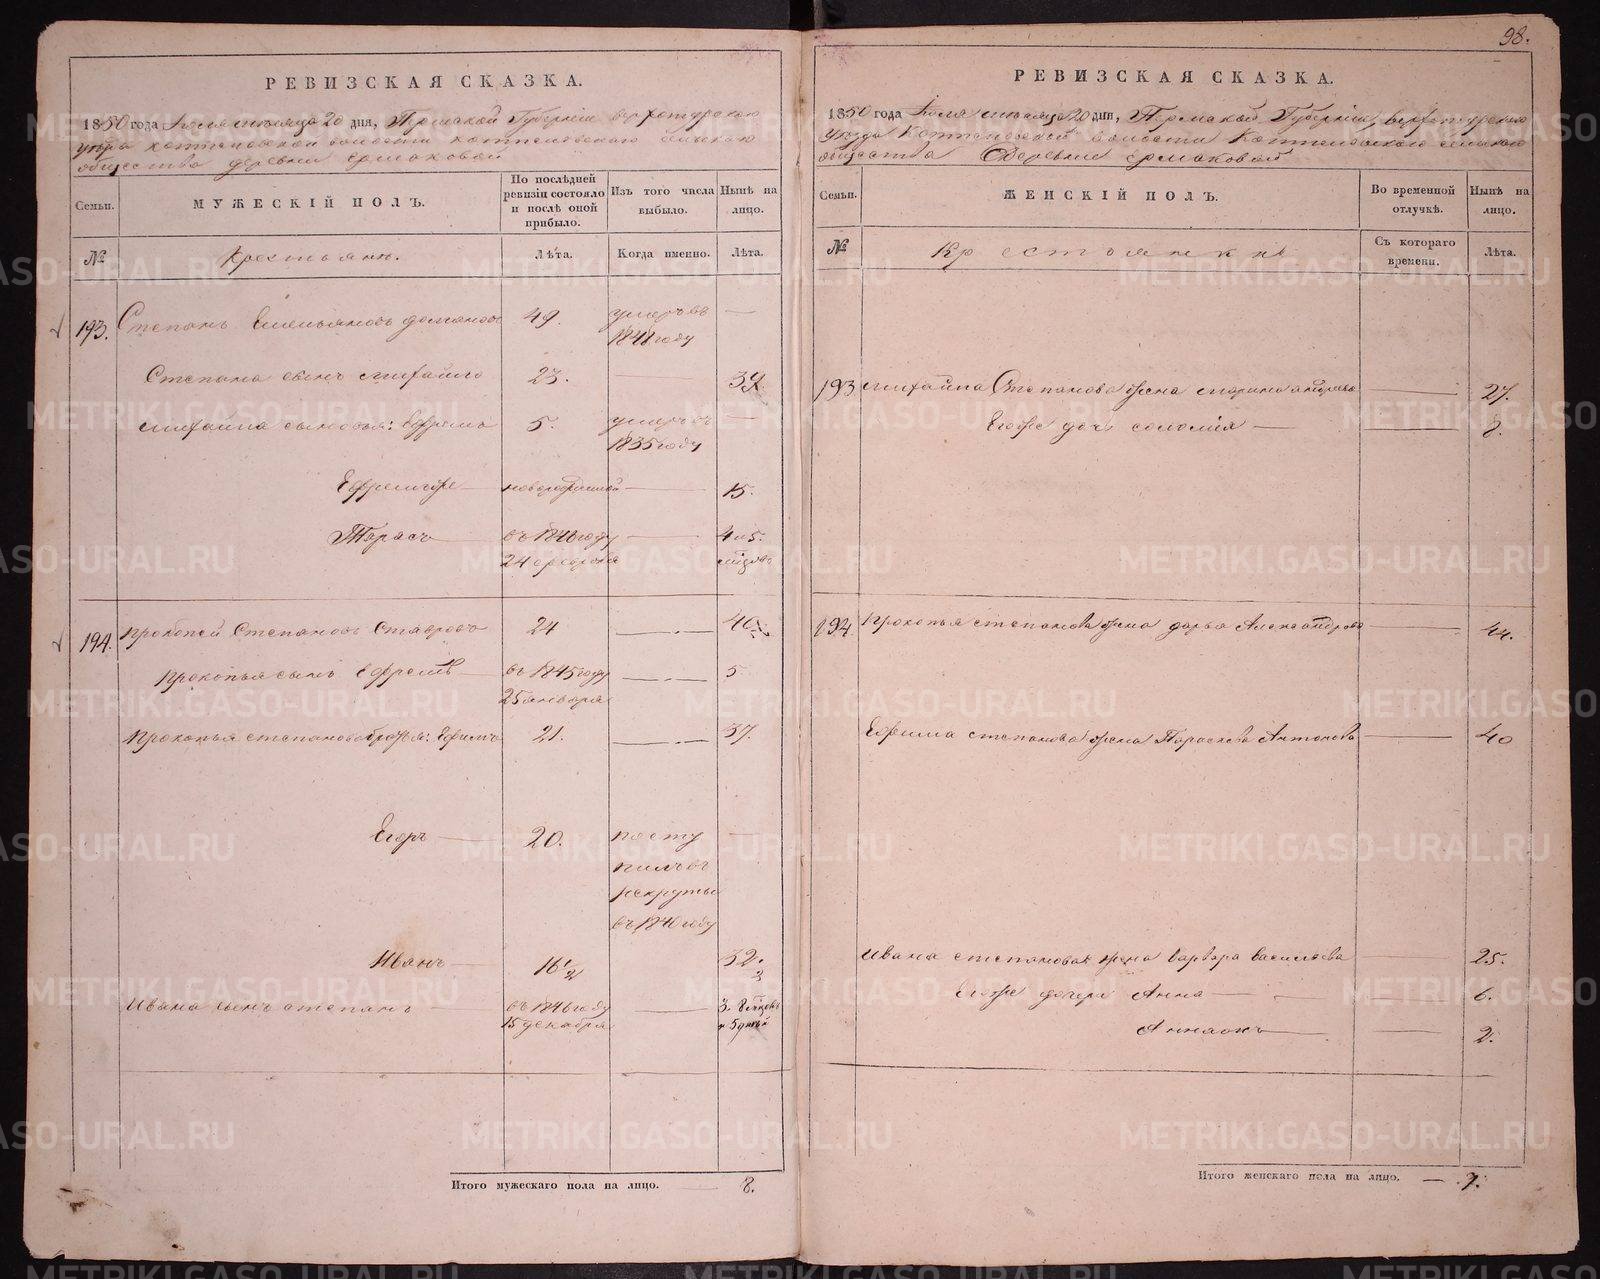 98.
РЕВИЗСКАЯ СКАЗКА.
1850 года Июля месяца 20 дня, Пермской Губерніи верхотурскаго
уезда коптеловской волости коптеловскаго сельскаго
общества деревни ермаковой
Семьи.
МУЖЕСКІЙ ПОЛЪ.
По послѣдней ревизіи состояло и послѣ оной прибыло.
Изъ того числа выбыло.
Нынѣ на лицо.
№
Крестьянъ.
Лѣта.
Когда именно.
Лѣта.
193. Степанъ Емельяновъ 49. умеръ въ —
1848 году
Степана сынъ михайло 23. —
михайла сыновья: Ефремъ 5. умеръ въ —
1835 году
Ефремъ же — новорожденной — 15.
Тарасъ — въ 1846 году — 4 и 5.
24 февраля месяцовъ
194. прокопей Степановъ 24 — 40
прокопья сынъ Ефремъ — въ 1845 году — 5
25 января
прокопья степанова братья: Ефимъ 21. — 37.
Егоръ — 20. посту —
пилъ въ
рекруты
въ 1840 году
Иванъ — 16 1/2 32.
Ивана сынъ степанъ — въ 1846 году — 3.
15 декабря и 5 дней
Итого мужескаго пола на лицо. — 8.
РЕВИЗСКАЯ СКАЗКА.
1850 года Июля месяца 20 дни, Пермской Губерніи, верхотурскаго
уезда Коптеловской волости Коптеловскаго сельскаго
общества Деревни ермаковой
Семьи.
ЖЕНСКІЙ ПОЛЪ.
Во временной отлучкѣ.
Нынѣ на лицо.
№
Крестьянки
Съ котораго времени.
Лѣта.
193 михайла Степанова жена марина андреева — 27.
Егоже дочь соломія — 8.
194. прокопья степанова жена дарья Александрова — 44.
Ефима степанова жена Парасковья Антонова — 40
Ивана степанова жена варвара васильева — 25.
Егоже дочери Анна — 6.
— 2.
Итого женскаго пола на лицо. — 7.
METRIKI.GASO-URAL.RU